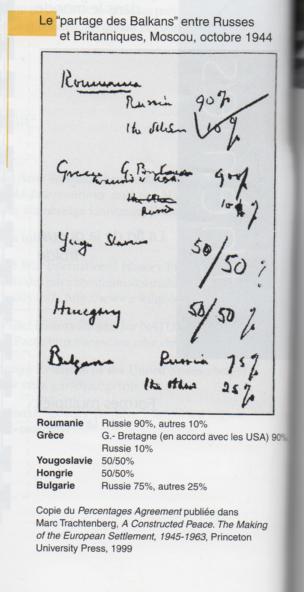 Le "partage des Balkans" entre Russes
et Britanniques, Moscou, octobre 1944
Roumania
Russia 90%
The others 10%
Greece G. Britain 90%
in accord with USA.
The Other
Russia 10%
Yugo Slavia 50/50%
Hungary 50/50%
Bulgaria Russia 75%
The others 25%
Roumanie Russie 90%, autres 10%
Grèce G.- Bretagne (en accord avec les USA) 90%
Russie 10%
Yougoslavie 50/50%
Hongrie 50/50%
Bulgarie Russie 75%, autres 25%
Copie du Percentages Agreement publiée dans
Marc Trachtenberg, A Constructed Peace. The Making
of the European Settlement, 1945-1963, Princeton
University Press, 1999